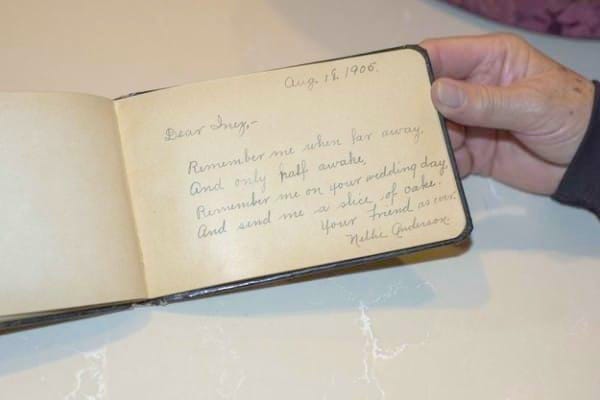 Aug. 18, 1906.
Dear Inez,-
Remember me when far away,
And only half awake,
Remember me on your wedding day,
And send me a slice of cake.
Your friend as ever.
Nellie Anderson.